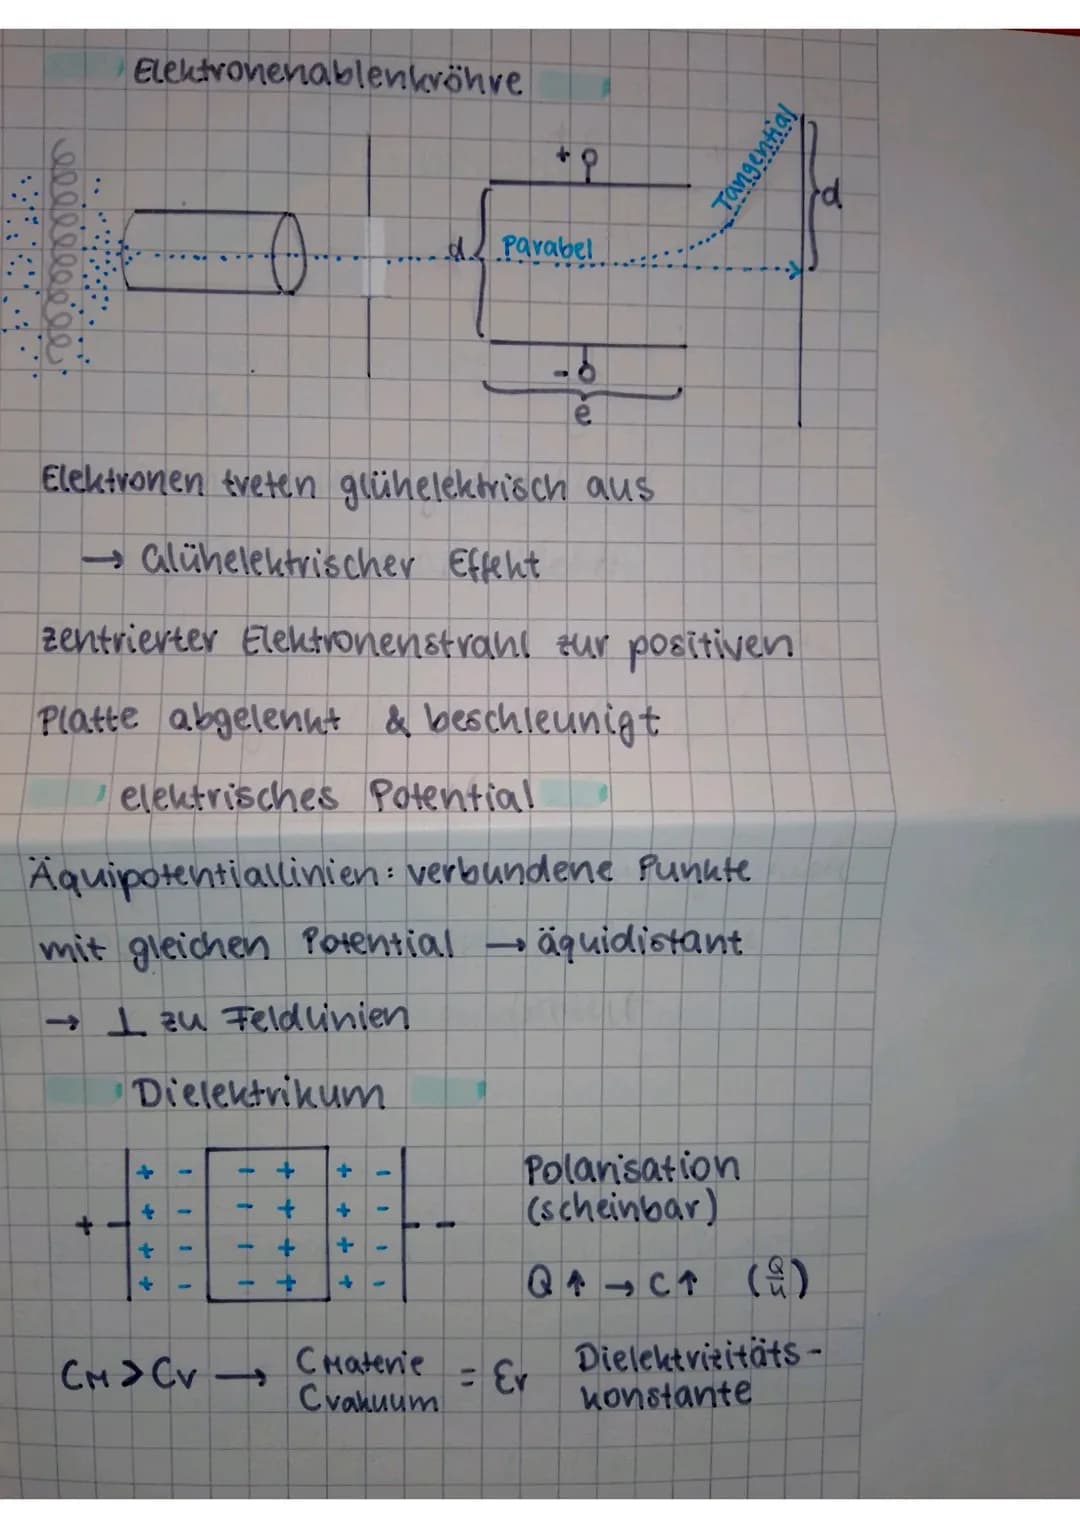 Elektronenablenkröhre
+
Tangential
d
d
Parabel
-
e
Elektronen treten glühelektrisch aus
→ Glühelektrischer Effekt
zentrierter Elektronenstrahl zur positiven
Platte abgelenkt & beschleunigt
elektrisches Potential
Äquipotentiallinien: verbundene Punkte
mit gleichen Potential → äquidistant
→ ⊥ zu Feldlinien
Dielektrikum
+ - - + + -
+ - - + + -
+ -
+ - - + + -
+ - - + + -
Polarisation
(scheinbar)
Q ↑ → C ↑ (Q/U)
CM > CV → CMaterie / CVakuum = εr Dielektrizitäts-
konstante